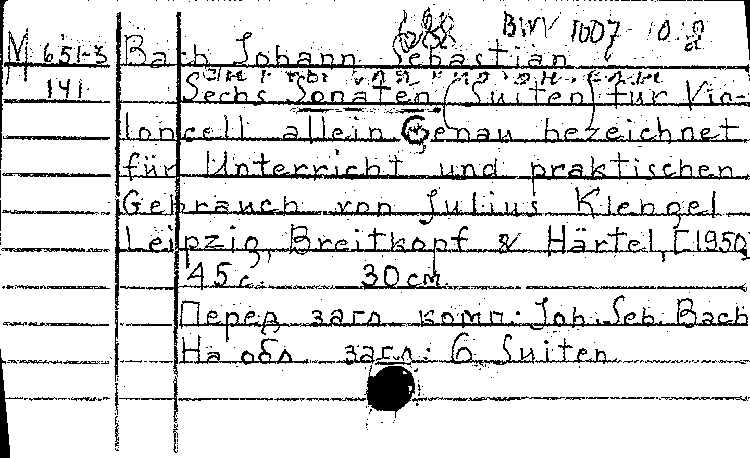 BWV 1007-1012
M 651-3 Bach Johann Sebastian
141 Sechs Sonaten (Suiten) für Vio-
loncell allein Genau bezeichnet
für Unterricht und praktischen
Gebrauch von Julius Klengel
Leipzig, Breitkopf & Härtel, [1950]
45 с. 30 см.
Перед загл комп: Joh. Seb. Bach
На обл. загл: 6 Suiten